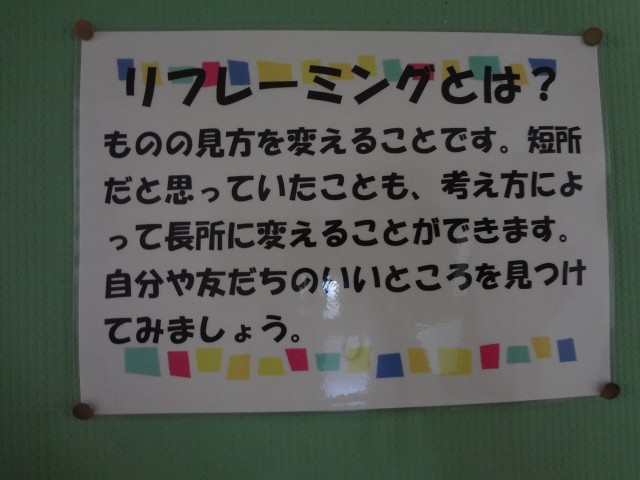 リフレーミングとは?
ものの見方を変えることです。短所
だと思っていたことも、考え方によ
って長所に変えることができます。
自分や友だちのいいところを見つけ
てみましょう。